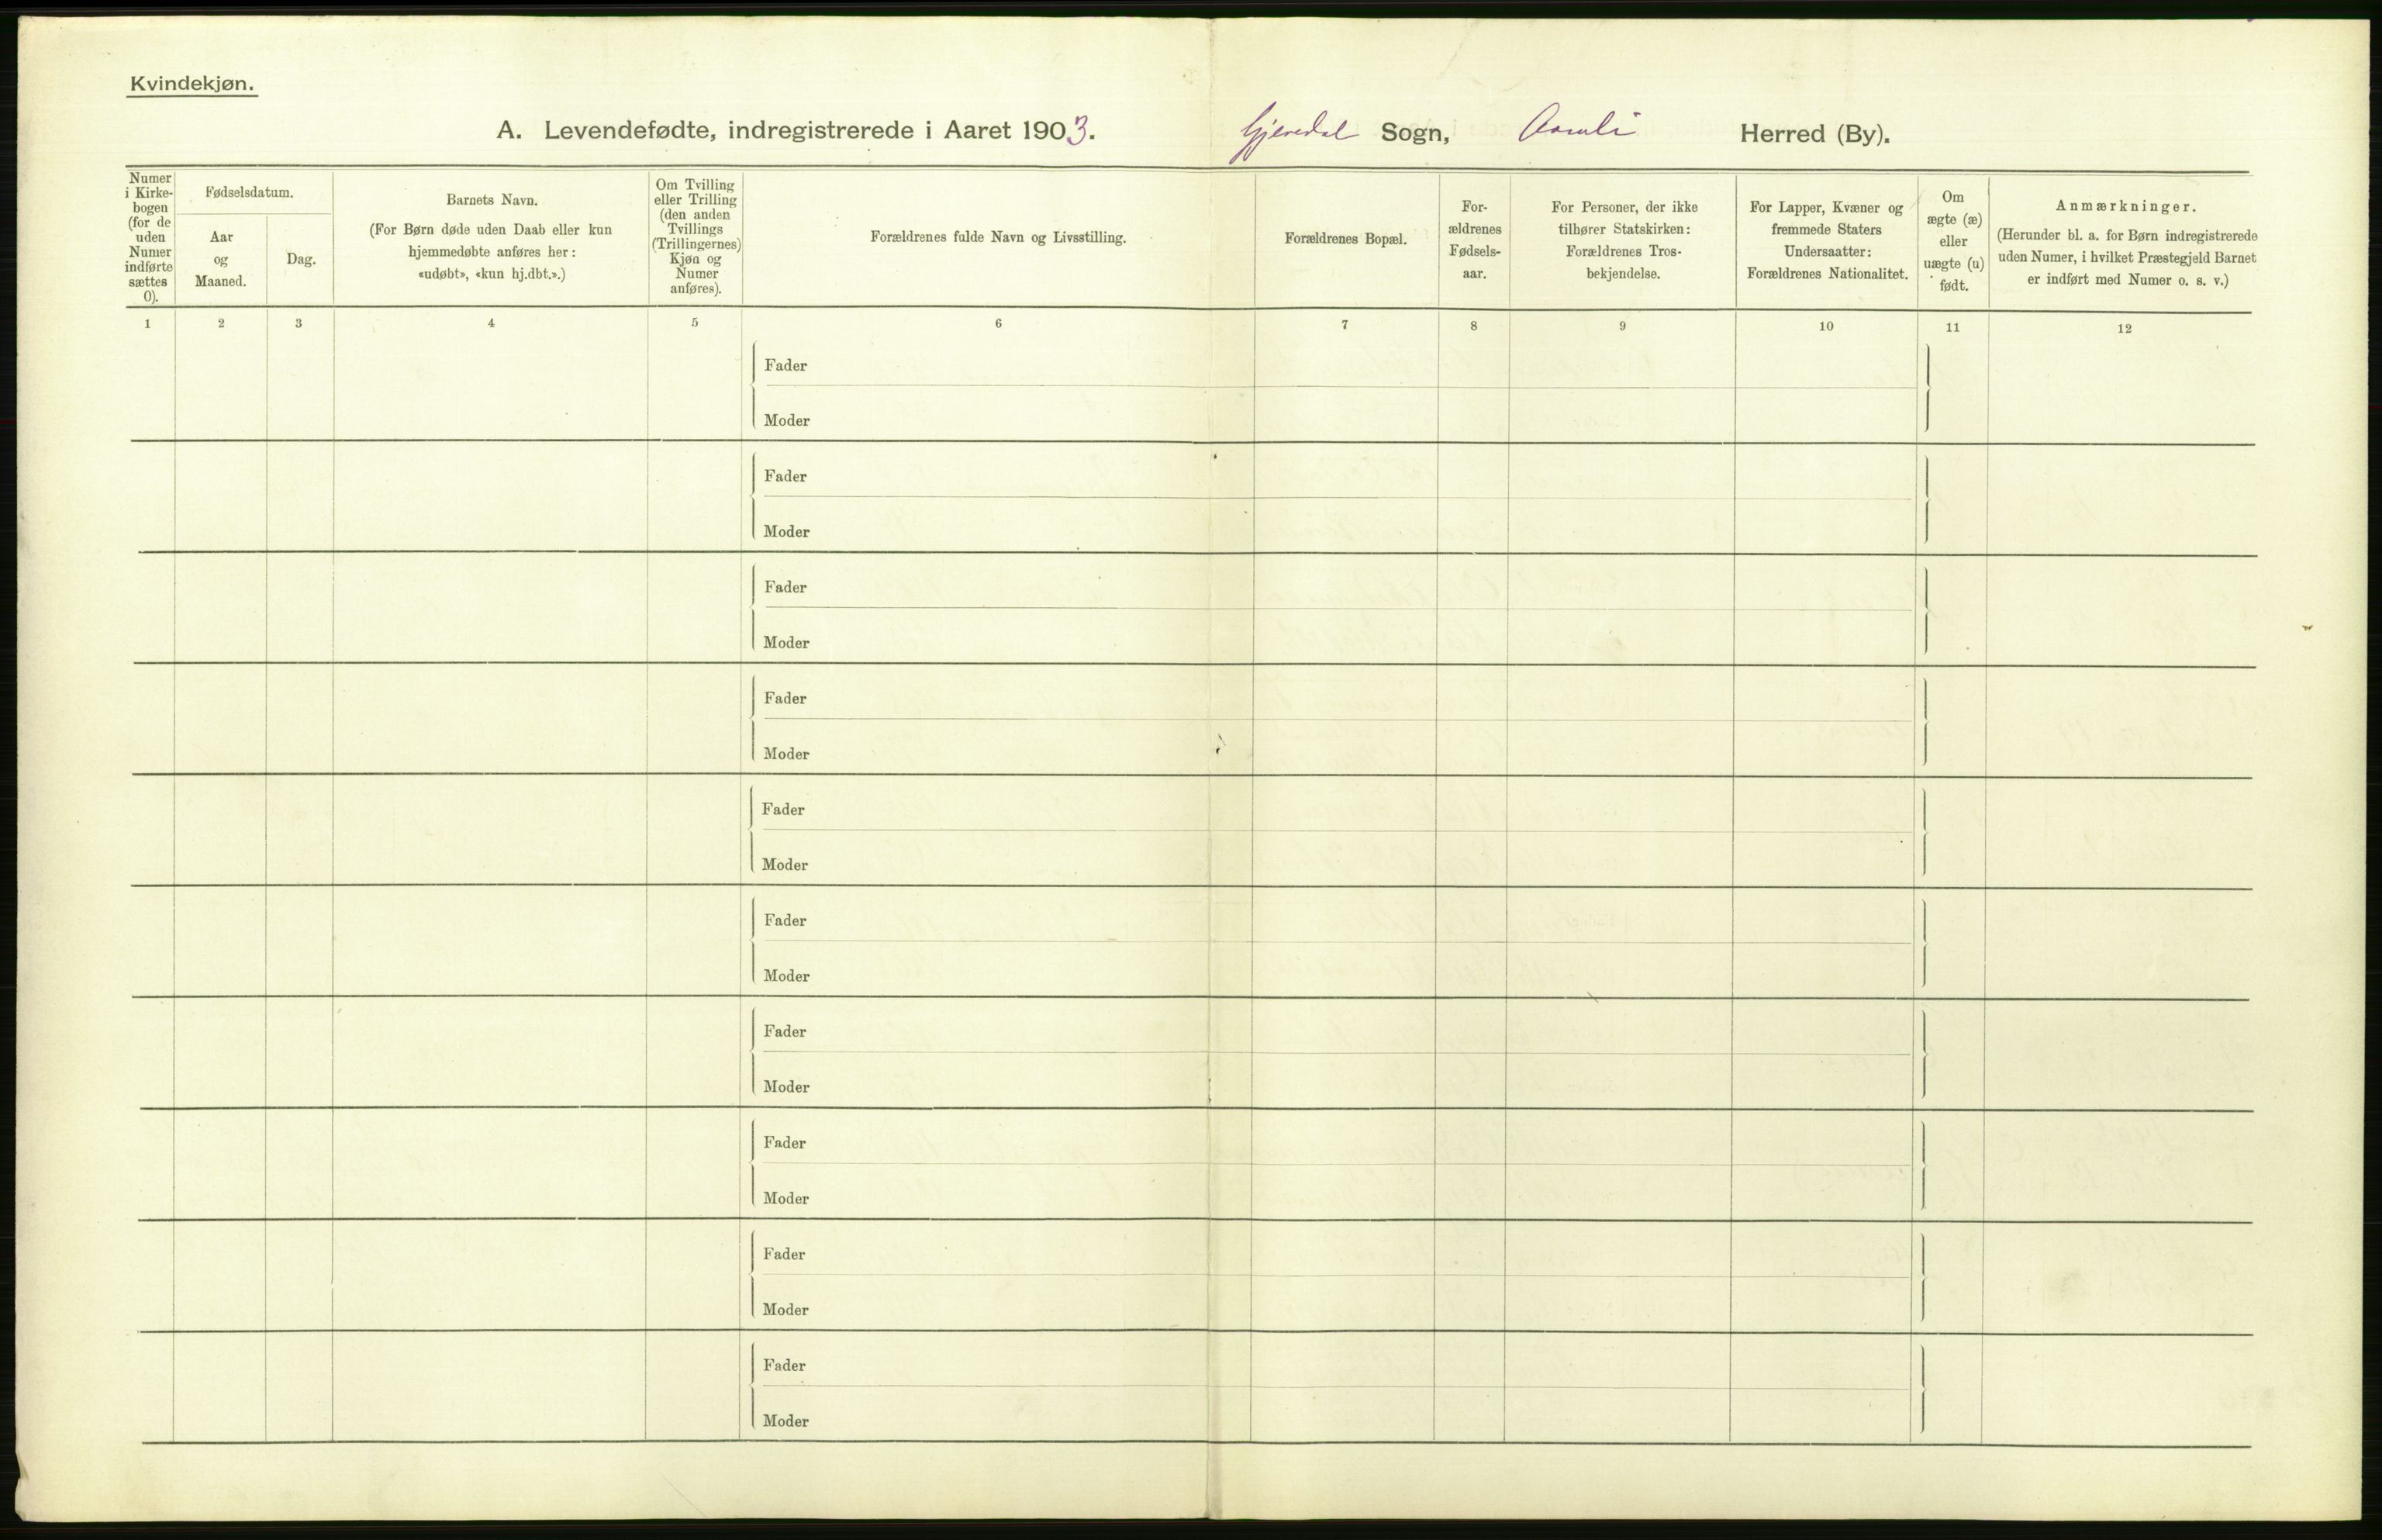 Kvindekjøn.
A. Levendefødte, indregistrerede i Aaret 1903. Gjevedal Sogn, Aamli Herred (By).
Numer
i Kirke-
bogen
(for de
uden
Numer
indførte
sættes
0).
Fødselsdatum.
Aar
og
Maaned.
Dag.
Barnets Navn.
(For Børn døde uden Daab eller kun
hjemmedøbte anføres her:
«udøbt», «kun hj.dbt.».)
Om Tvilling
eller Trilling
(den anden
Tvillings
(Trillingernes)
Kjøn og
Numer
anføres).
Forældrenes fulde Navn og Livsstilling.
Forældrenes Bopæl.
For-
ældrenes
Fødsels-
aar.
For Personer, der ikke
tilhører Statskirken:
Forældrenes Tros-
bekjendelse.
For Lapper, Kvæner og
fremmede Staters
Undersaatter:
Forældrenes Nationalitet.
Om
ægte (æ)
eller
uægte (u)
født.
Anmærkninger.
(Herunder bl. a. for Børn indregistrerede
uden Numer, i hvilket Præstegjeld Barnet
er indført med Numer o. s. v.)
1 2 3 4 5 6 7 8 9 10 11 12
Fader
Moder
Fader
Moder
Fader
Moder
Fader
Moder
Fader
Moder
Fader
Moder
Fader
Moder
Fader
Moder
Fader
Moder
Fader
Moder